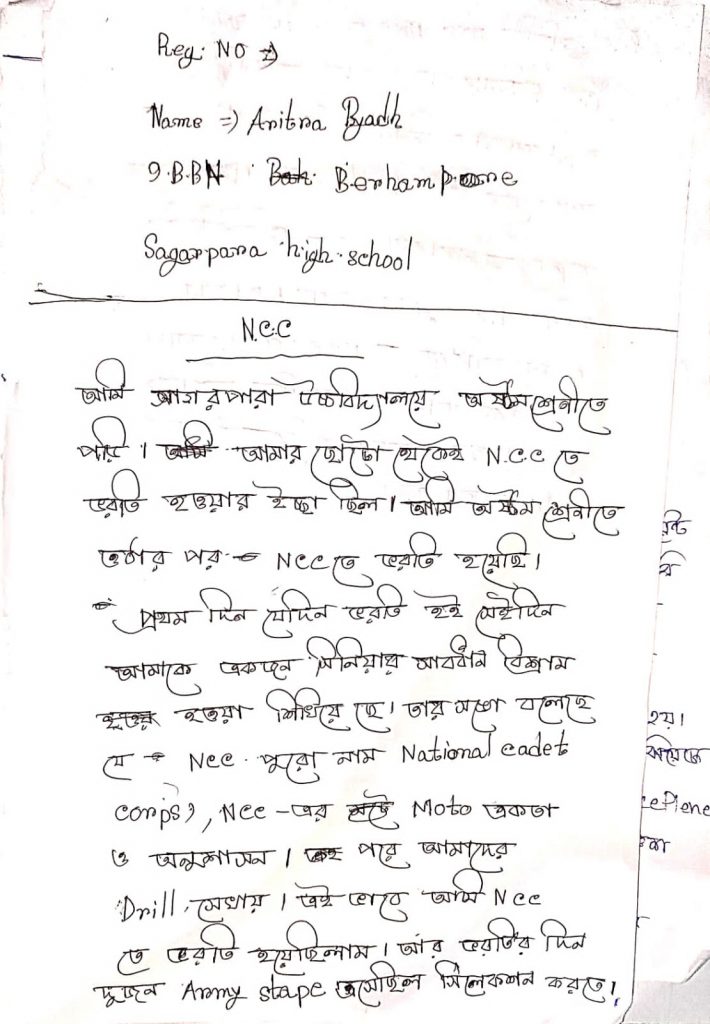 Reg: NO ⇒
Name ⇒ Aritra Byadh
9.B.BN Berhampore
Sagarpara high school
N.C.C
আমি সাগরপারা উচ্চবিদ্যালয়ে অষ্টম শ্রেনীতে
পড়ি। আমার ছোটো থেকেই N.C.C তে
ভরতি হওয়ার ইচ্ছা ছিল। আমি অষ্টম শ্রেনীতে
ওঠার পর NCC তে ভরতি হয়েছি।
প্রথম দিন যেদিন ভরতি হই সেইদিন
আমাকে একজন সিনিয়ার সাবধান বিশ্রাম
হওয়া শিখিয়েছে। তার সঙ্গে বলেছে
যে NCC পুরো নাম National cadet
corps), NCC -এর Moto একতা
ও অনুশাসন। পরে আমাদের
Drill শেখায়। এই ভাবে আমি NCC
তে ভরতি হয়েছিলাম। আর ভরতির দিন
দুজন Army stape এসেছিল সিলেকশন করতে।
হয়।